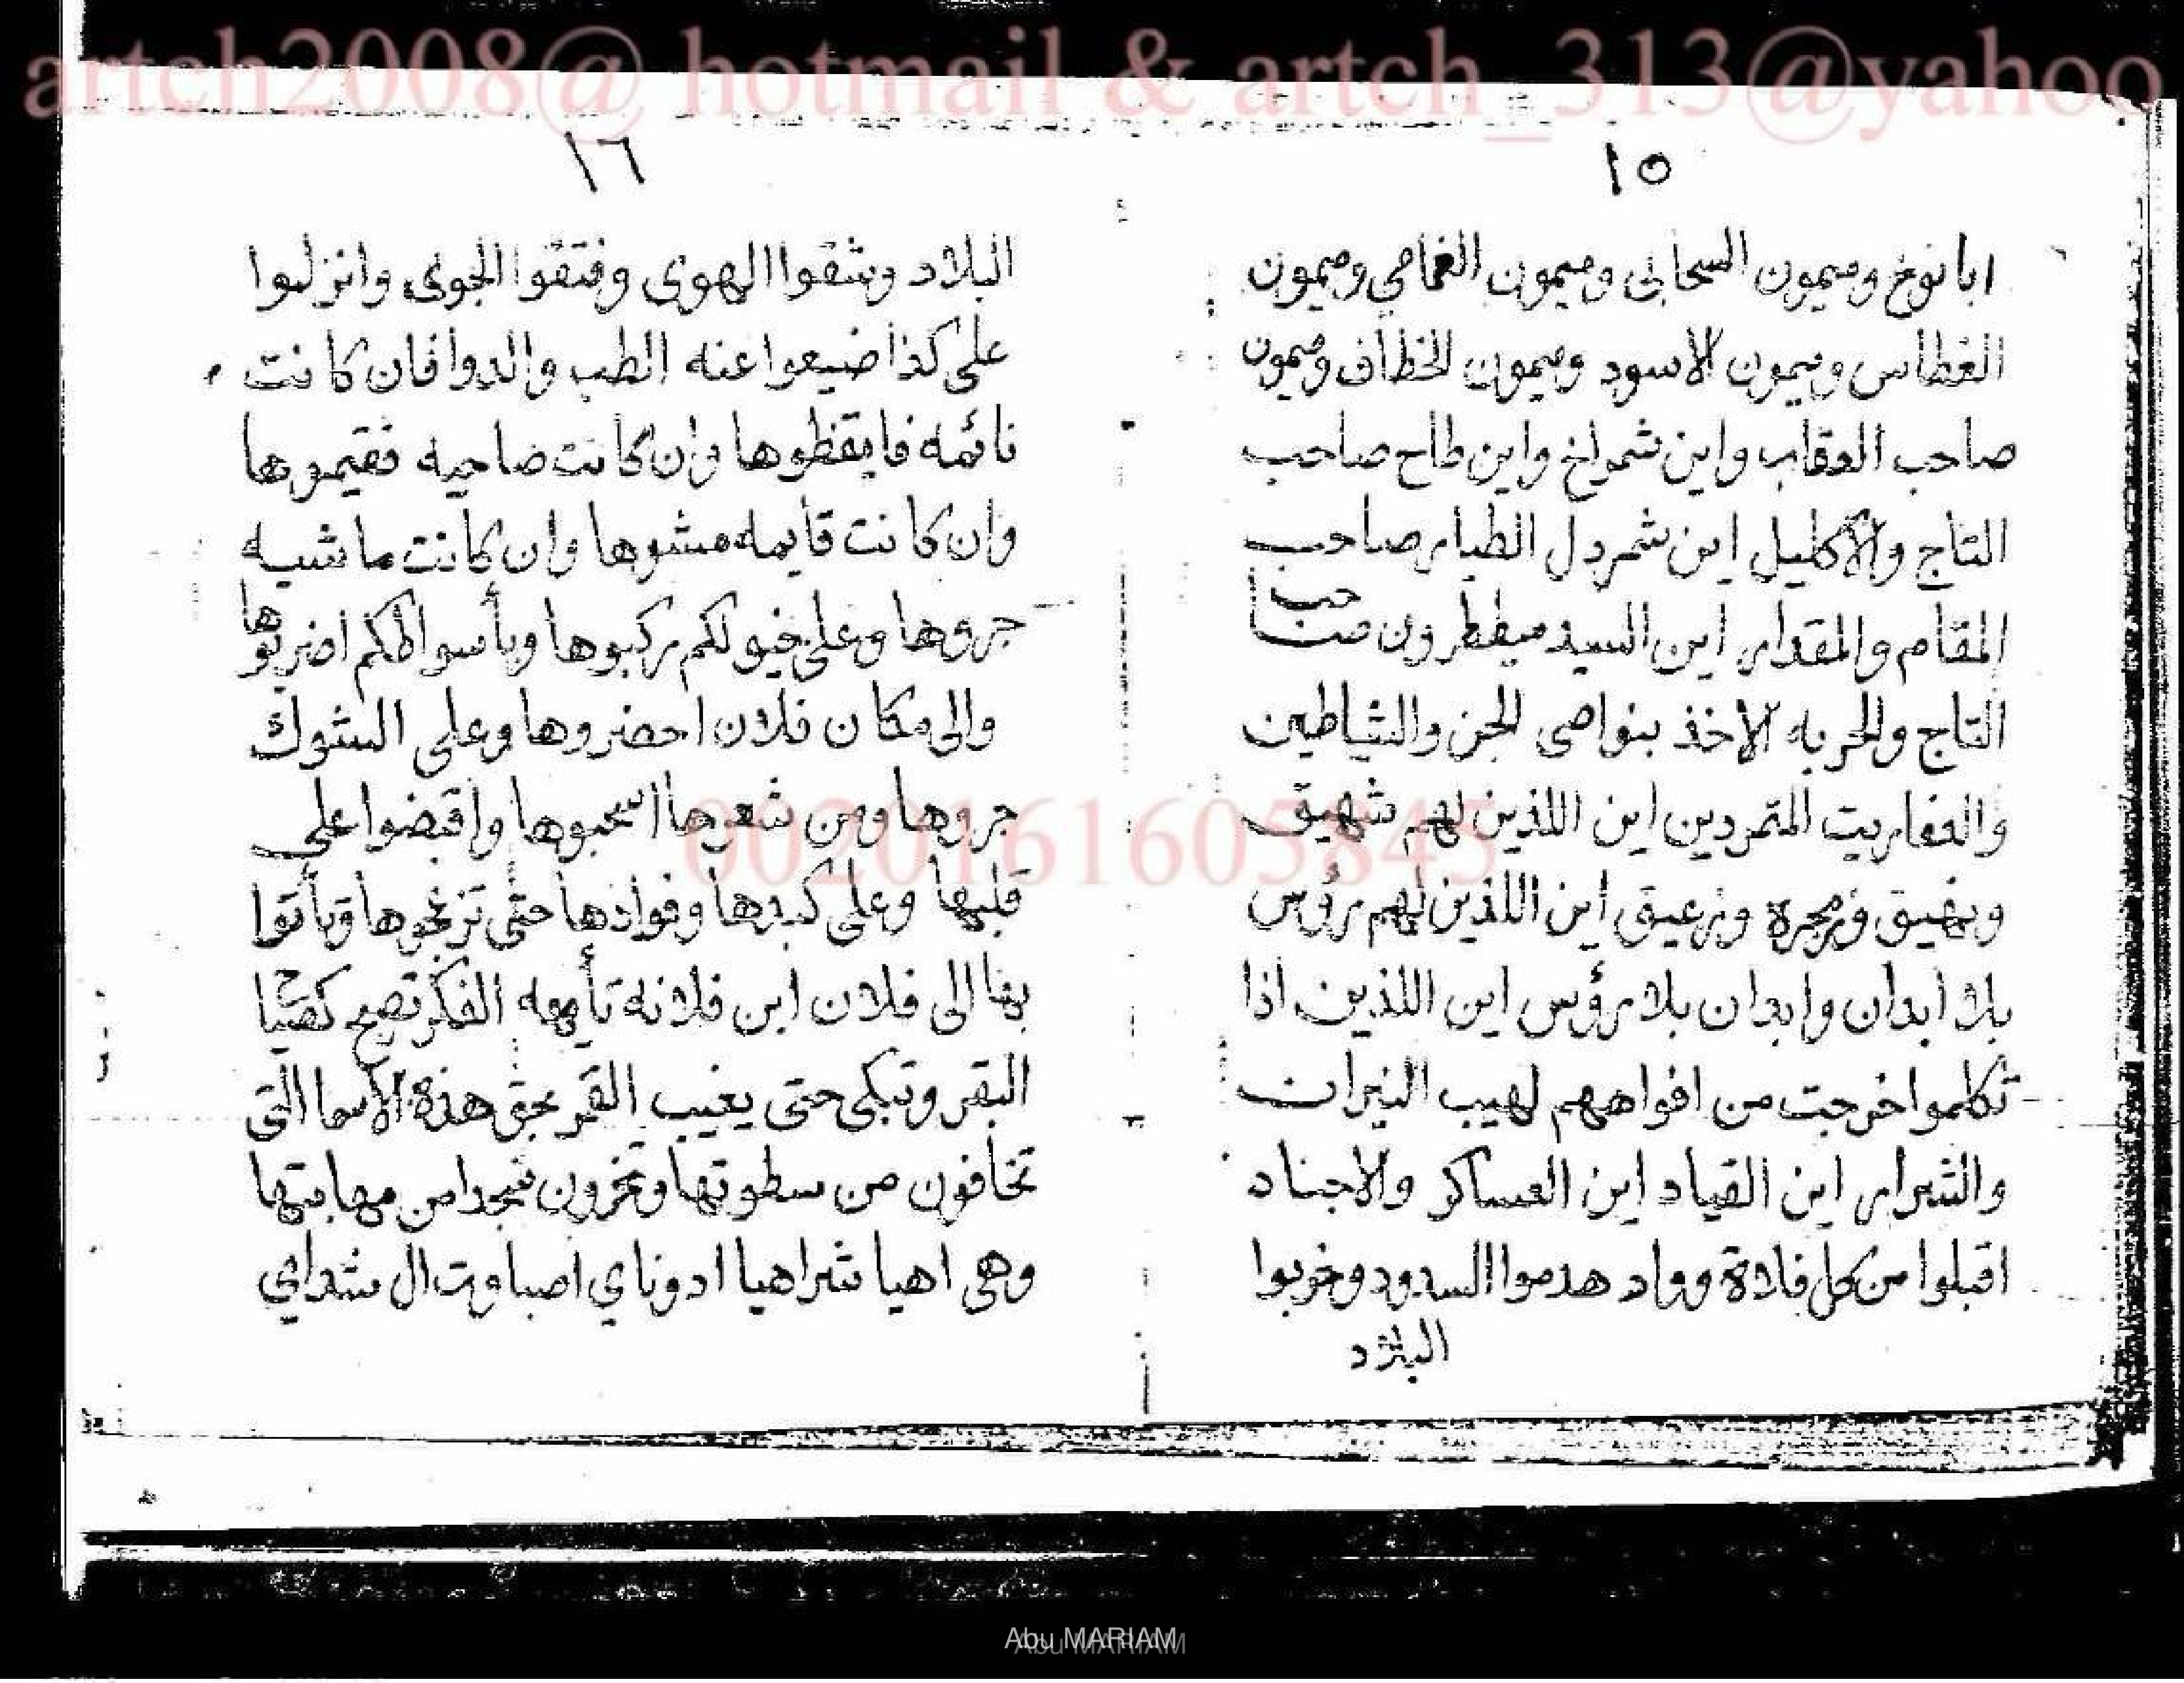 artch2008@ hotmail & artch_313@yahoo
١٥
ابا نوخ وميمون السحابى وميمون الغمامي وميمون
الغطاس وميمون الاسود وميمون الخطاف وميمون
صاحب العقاب واين شمواخ واين طاح صاحب
التاج والأكليل اين شمردل الطيار صاحب
المقام والمقدار اين السيد ميططرون صاحب
التاج والحربه الاخذ بنواصى الجن والشياطين
والعفاريت المتمردين اين اللذين لهم شهيق
ونهيق وزمجرة وزعيق اين اللذين لهم رؤس
بلا أبدان وابدان بلا رؤس اين اللذين اذا
تكلموا خرجت من افواههم لهيب النيران
والشرار اين القياد اين العساكر والاجناد
اقبلوا من كل فلاة وواد هدموا السدود وخربوا
البلاد
١٦
البلاد وشقوا الهوى وفتقوا الجوى وانزلوا
على كذا ضيعوا عنه الطب والدوا فان كانت
نائمه فايقظوها وان كانت صاحيه فقيموها
وان كانت قايمه مشوها وان كانت ماشيه
جروها وعلى خيولكم ركبوها وبأسواطكم اضربوها
والى مكان فلان احضروها وعلى الشوك
جروها ومن شعرها اسحبوها واقبضوا على
قلبها وعلى كبدها وفوادها حتى تزعجوها وتأتوا
بها الى فلان ابن فلانه تأيهه الفكر تصيح كصياح
البقر وتبكى حتى يغيب القمر بحق هذه الاسما التى
تخافون من سطوتها وتخرون سجدا من مهابتها
وهى اهيا شراهيا ادوناي اصباوت ال شداي
00201616058​45
Abu MARIAM